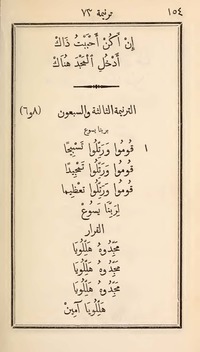 ١٥٤ ترنيمة ٧٣
إِنْ أَكُنْ أَحْبَبْتُ ذَاكْ
أَدْخُلِ ٱلْمَجْدَ هُنَاكْ
الترنيمة الثالثة والسبعون (٨و٦)
بربنا يسوع
١ قُومُوا وَرَتِّلُوا تَسْبِيحًا
قُومُوا وَرَتِّلُوا تَمْجِيدًا
قُومُوا وَرَتِّلُوا تَعْظِيمًا
لِرَبِّنَا يَسُوعْ
القرار
مَجِّدُوهُ هَلِّلُويَا
مَجِّدُوهُ هَلِّلُويَا
مَجِّدُوهُ هَلِّلُويَا
هَلِّلُويَا آمِينْ